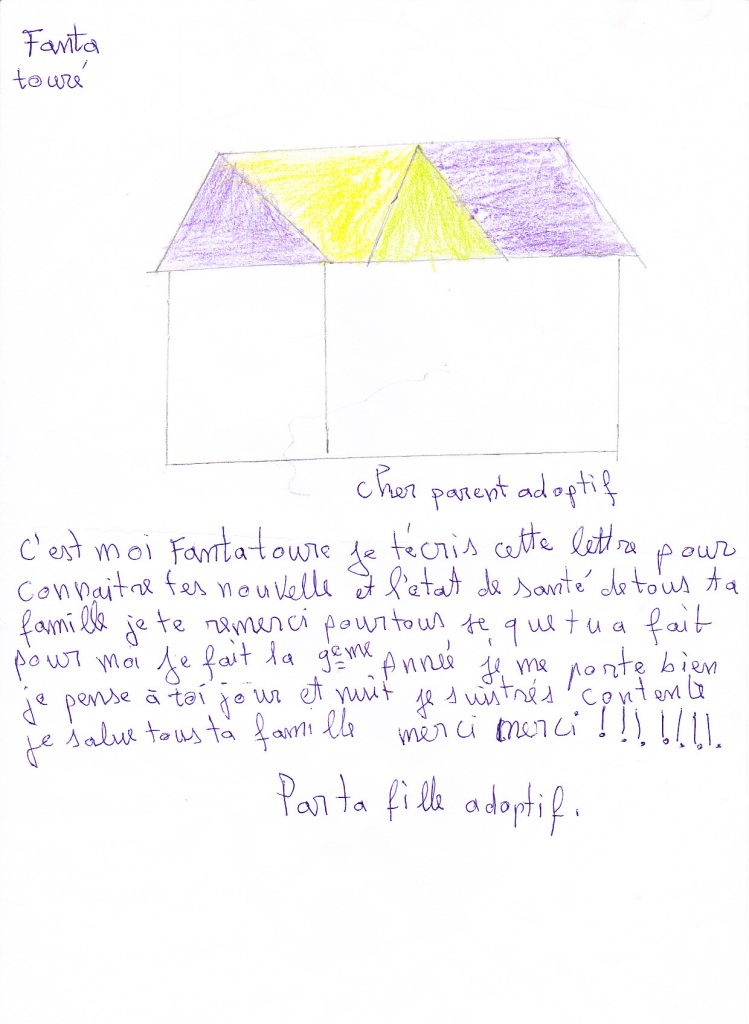 Fanta
touré
cher parent adoptif
C'est moi Fanta toure je t'écris cette lettre pour
connaitre tes nouvelle et l'état de santé de tous ta
famille je te remerci pour tous se que tu a fait
pour moi je fait la 9eme Année je me porte bien
je pense à toi jour et nuit je suis trés contente
je salue tous ta famille merci merci !!!!!!!.
Par ta fille adoptif.